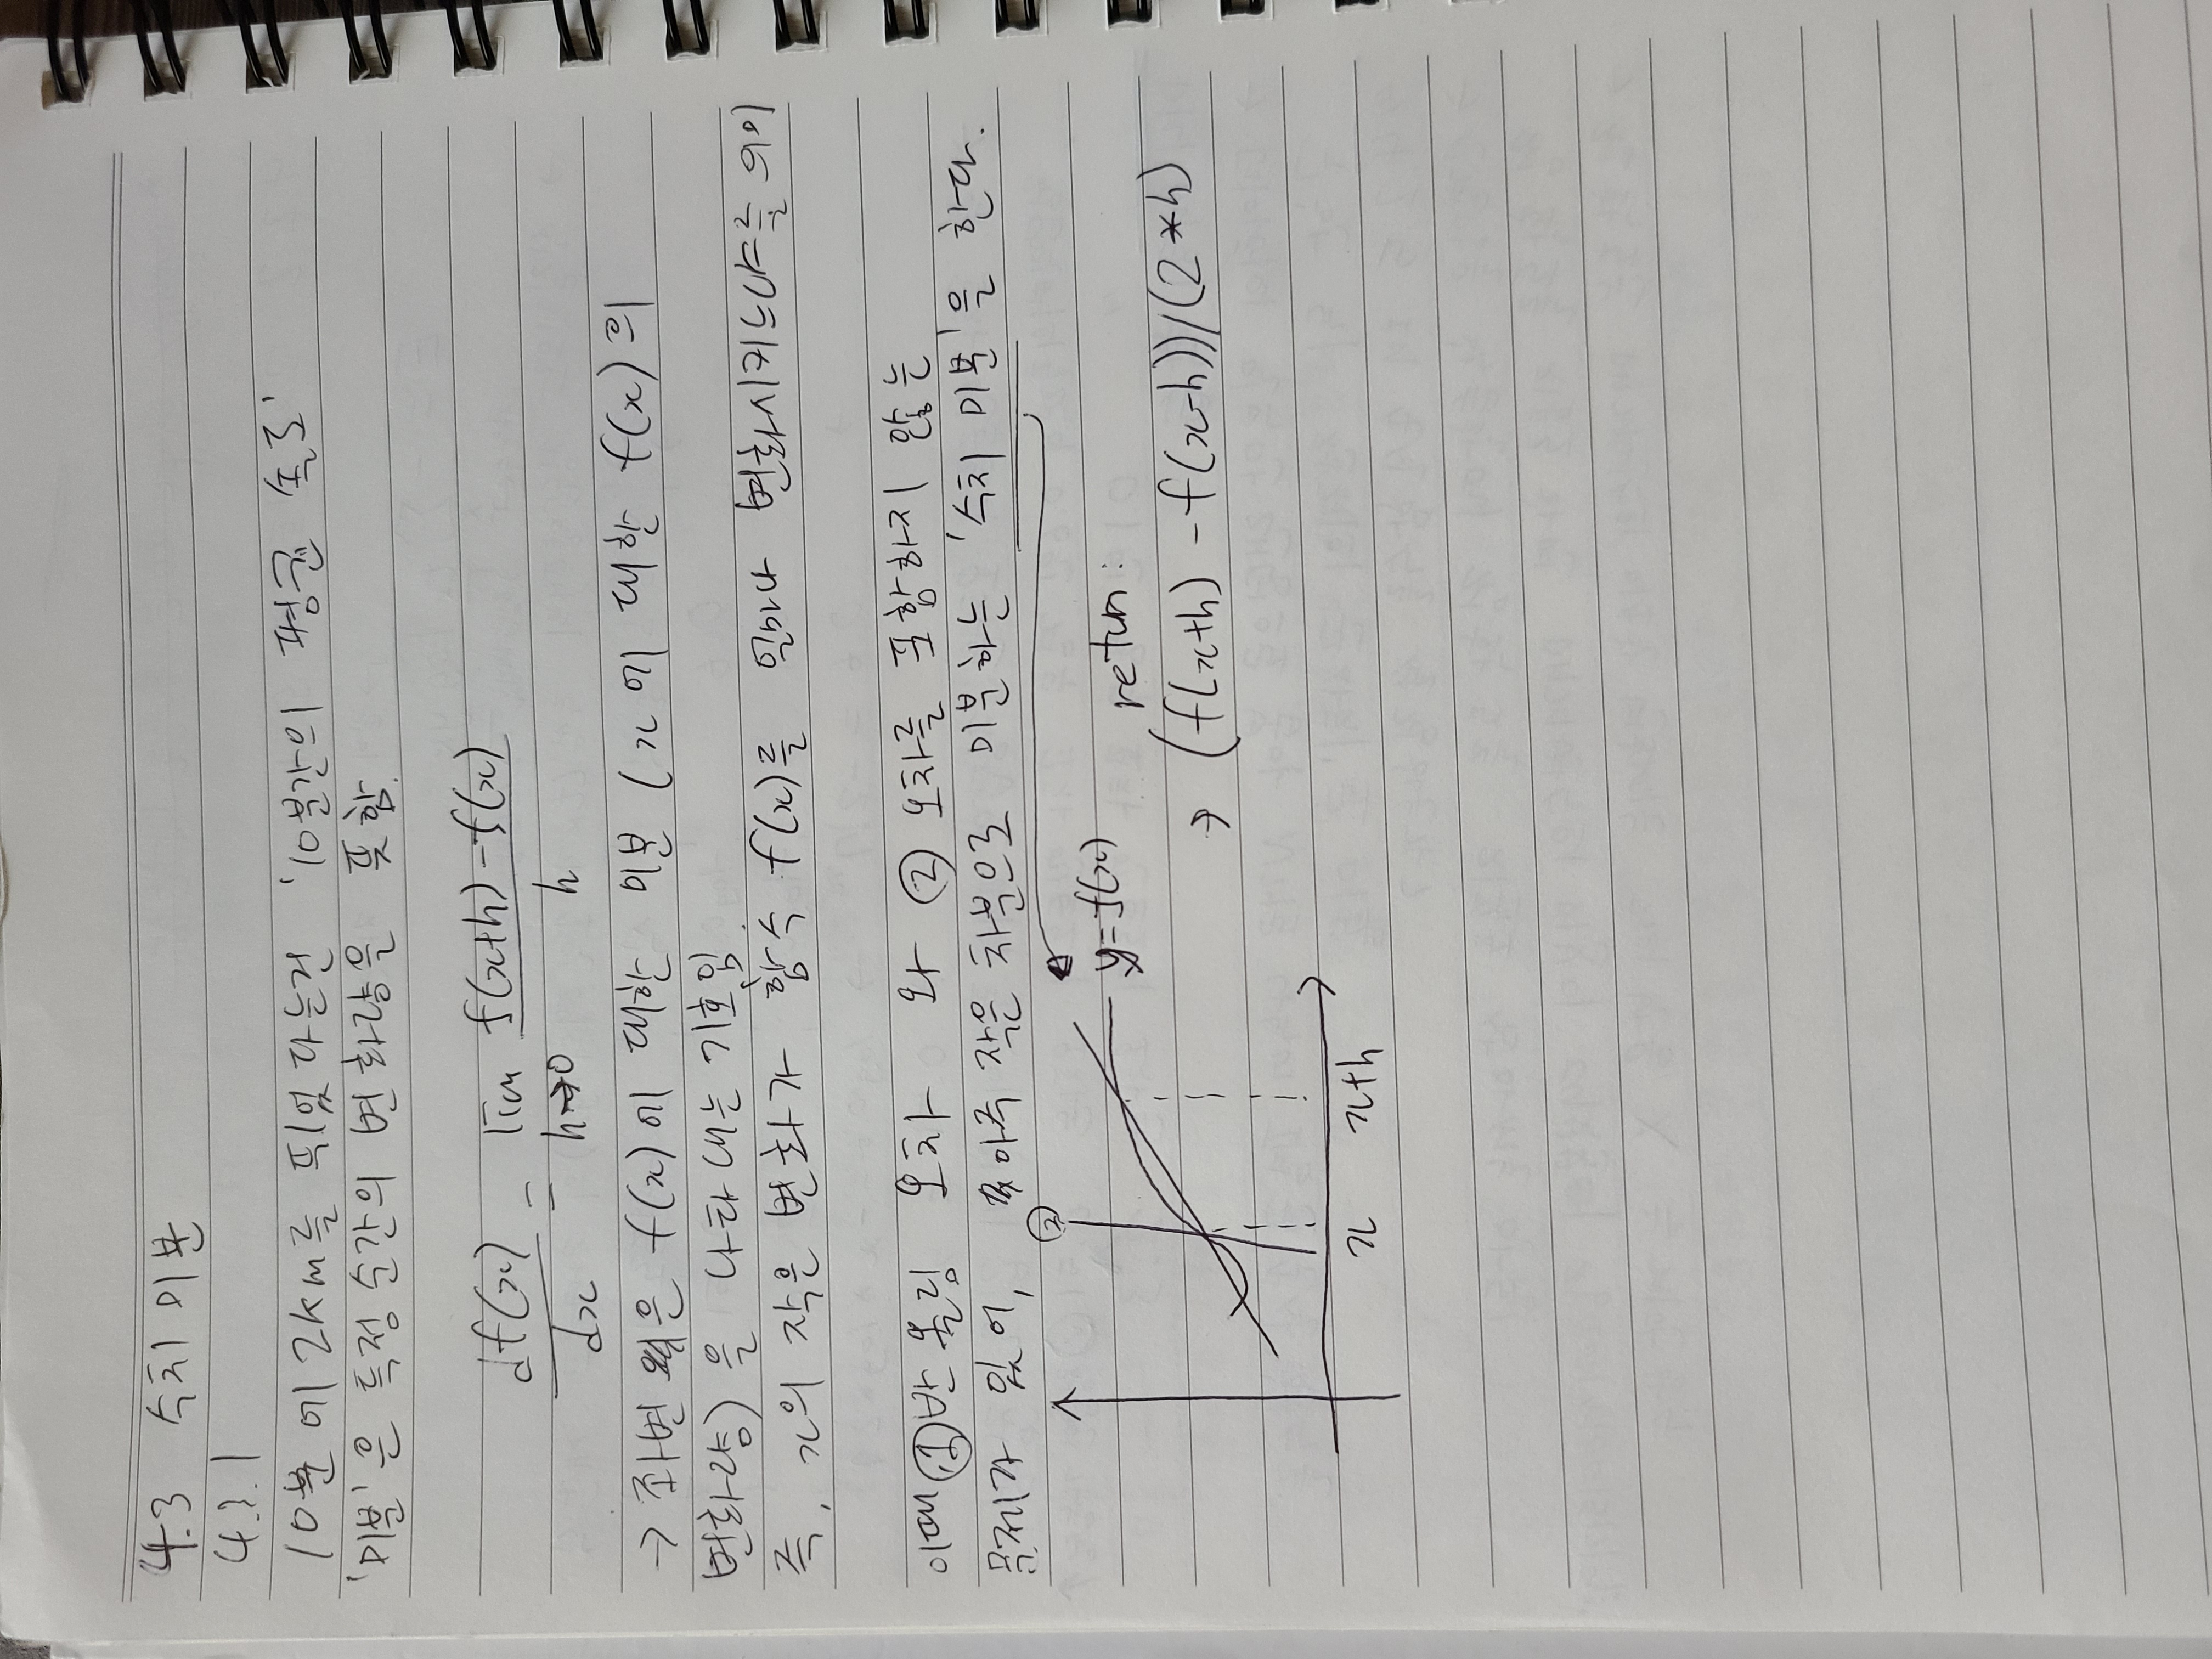 4.3 수치 미분
4.3.1
10분에 2km를 뛰었다는건 '10분간의 평균 속도'
'미분'은 특정 순간의 변화량을 뜻함.
df(x)/dx = lim h→0 (f(x+h) - f(x))/h
→ 좌변은 f(x)에 대한 미분 (x에 대한 f(x)의
변화량)을 나타내는 기호임.
즉, x의 작은 변화가 함수 f(x)를 얼마나 변화시키느냐를 의미
이때 ①반올림 오차 와 ② 오차를 포함하지 않는
문제가 있어, 아주 작은 차분으로 미분하는 '수치 미분'을 한다.
②
y=f(x)
return:
→ (f(x+h) - f(x-h))/(2*h)
x x+h